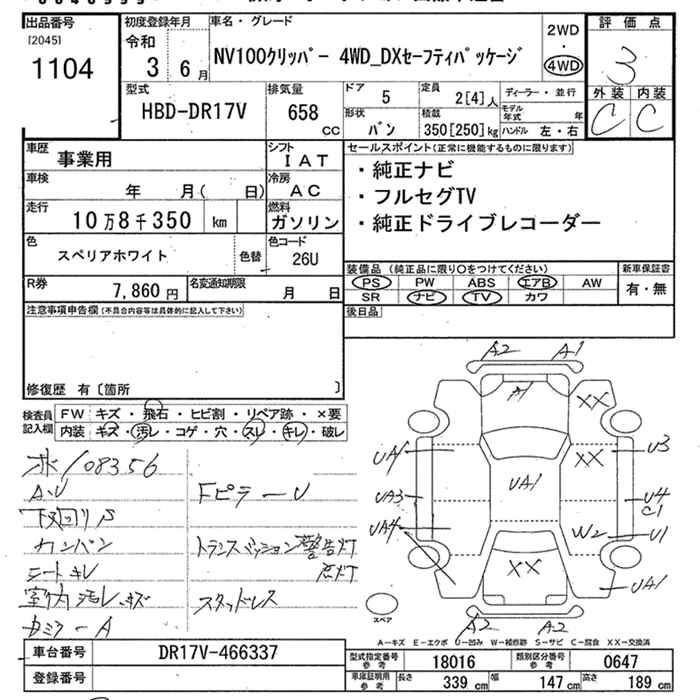 出品番号
[2045]
1104
初度登録年月
令和
3 6 月
車名・グレード
NV100クリッパー 4WD_DXセーフティパッケージ
2WD
・
4WD
評価点
3
外装 内装
C C
型式
HBD-DR17V
排気量
658 cc
ドア 5
形状 バン
定員 2[4]人
積載 350[250]kg
ディーラー・並行
モデル年式 年
ハンドル 左・右
車歴 事業用
シフト IAT
車検 年 月( 日)
冷房 AC
走行 10万8千350 km
燃料 ガソリン
色 スペリアホワイト 色替
色コード 26U
R券 7,860 円
名変通知期限 月 日
セールスポイント(正常に機能するものに限ります)
・純正ナビ
・フルセグTV
・純正ドライブレコーダー
装備品 (純正品に限り〇をつけてください)
PS PW ABS エアB AW
SR ナビ TV カワ
新車保証書
有・無
後日品
注意事項申告欄(不具合内容等は具体的に記入して下さい)
修復歴 有〔箇所 〕
検査員記入欄
FW キズ・飛石・ヒビ割・リペア跡・×要
内装 キズ・汚レ・コゲ・穴・スレ・キレ・破レ
108356
A.U
下回りS
カンバン
シートキレ
室内汚レ、キズ
カミラーA
FピラーU
トランスミッション警告灯
点灯
スタッドレス
A2 A1
A1 XX
UA1 XX U3
UA1
UA3 U4
C1
UA4 W2 U1
XX UA1
A2 A2
スペア
A-キズ E-エクボ U-凹み W-補修跡 S-サビ C-腐食 XX-交換済
車台番号 DR17V-466337
登録番号
型式指定番号 参考 18016
類別区分番号 参考 0647
車庫証明用 参考 長さ 339 cm 幅 147 cm 高さ 189 cm